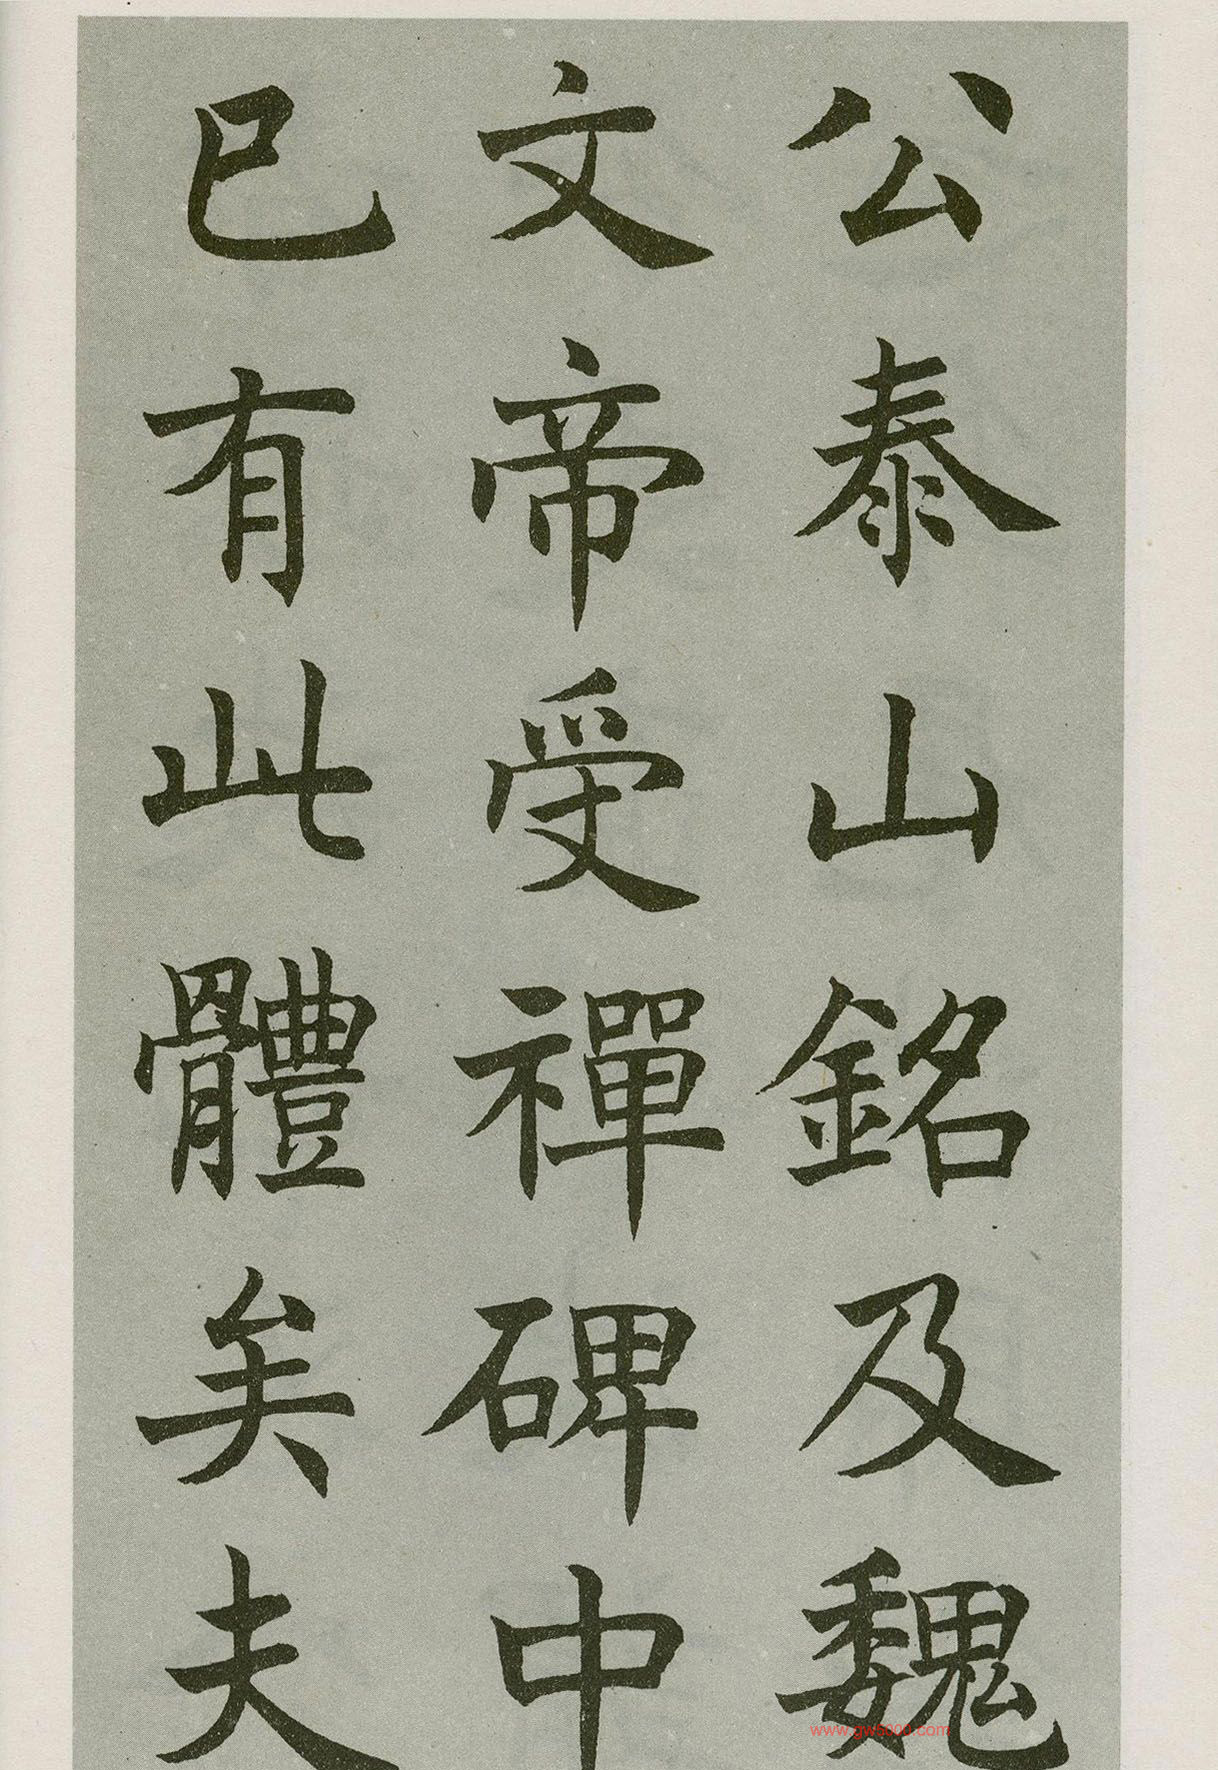 公泰山銘及魏
文帝受禪碑中
已有此體矣夫
www.gws000.com